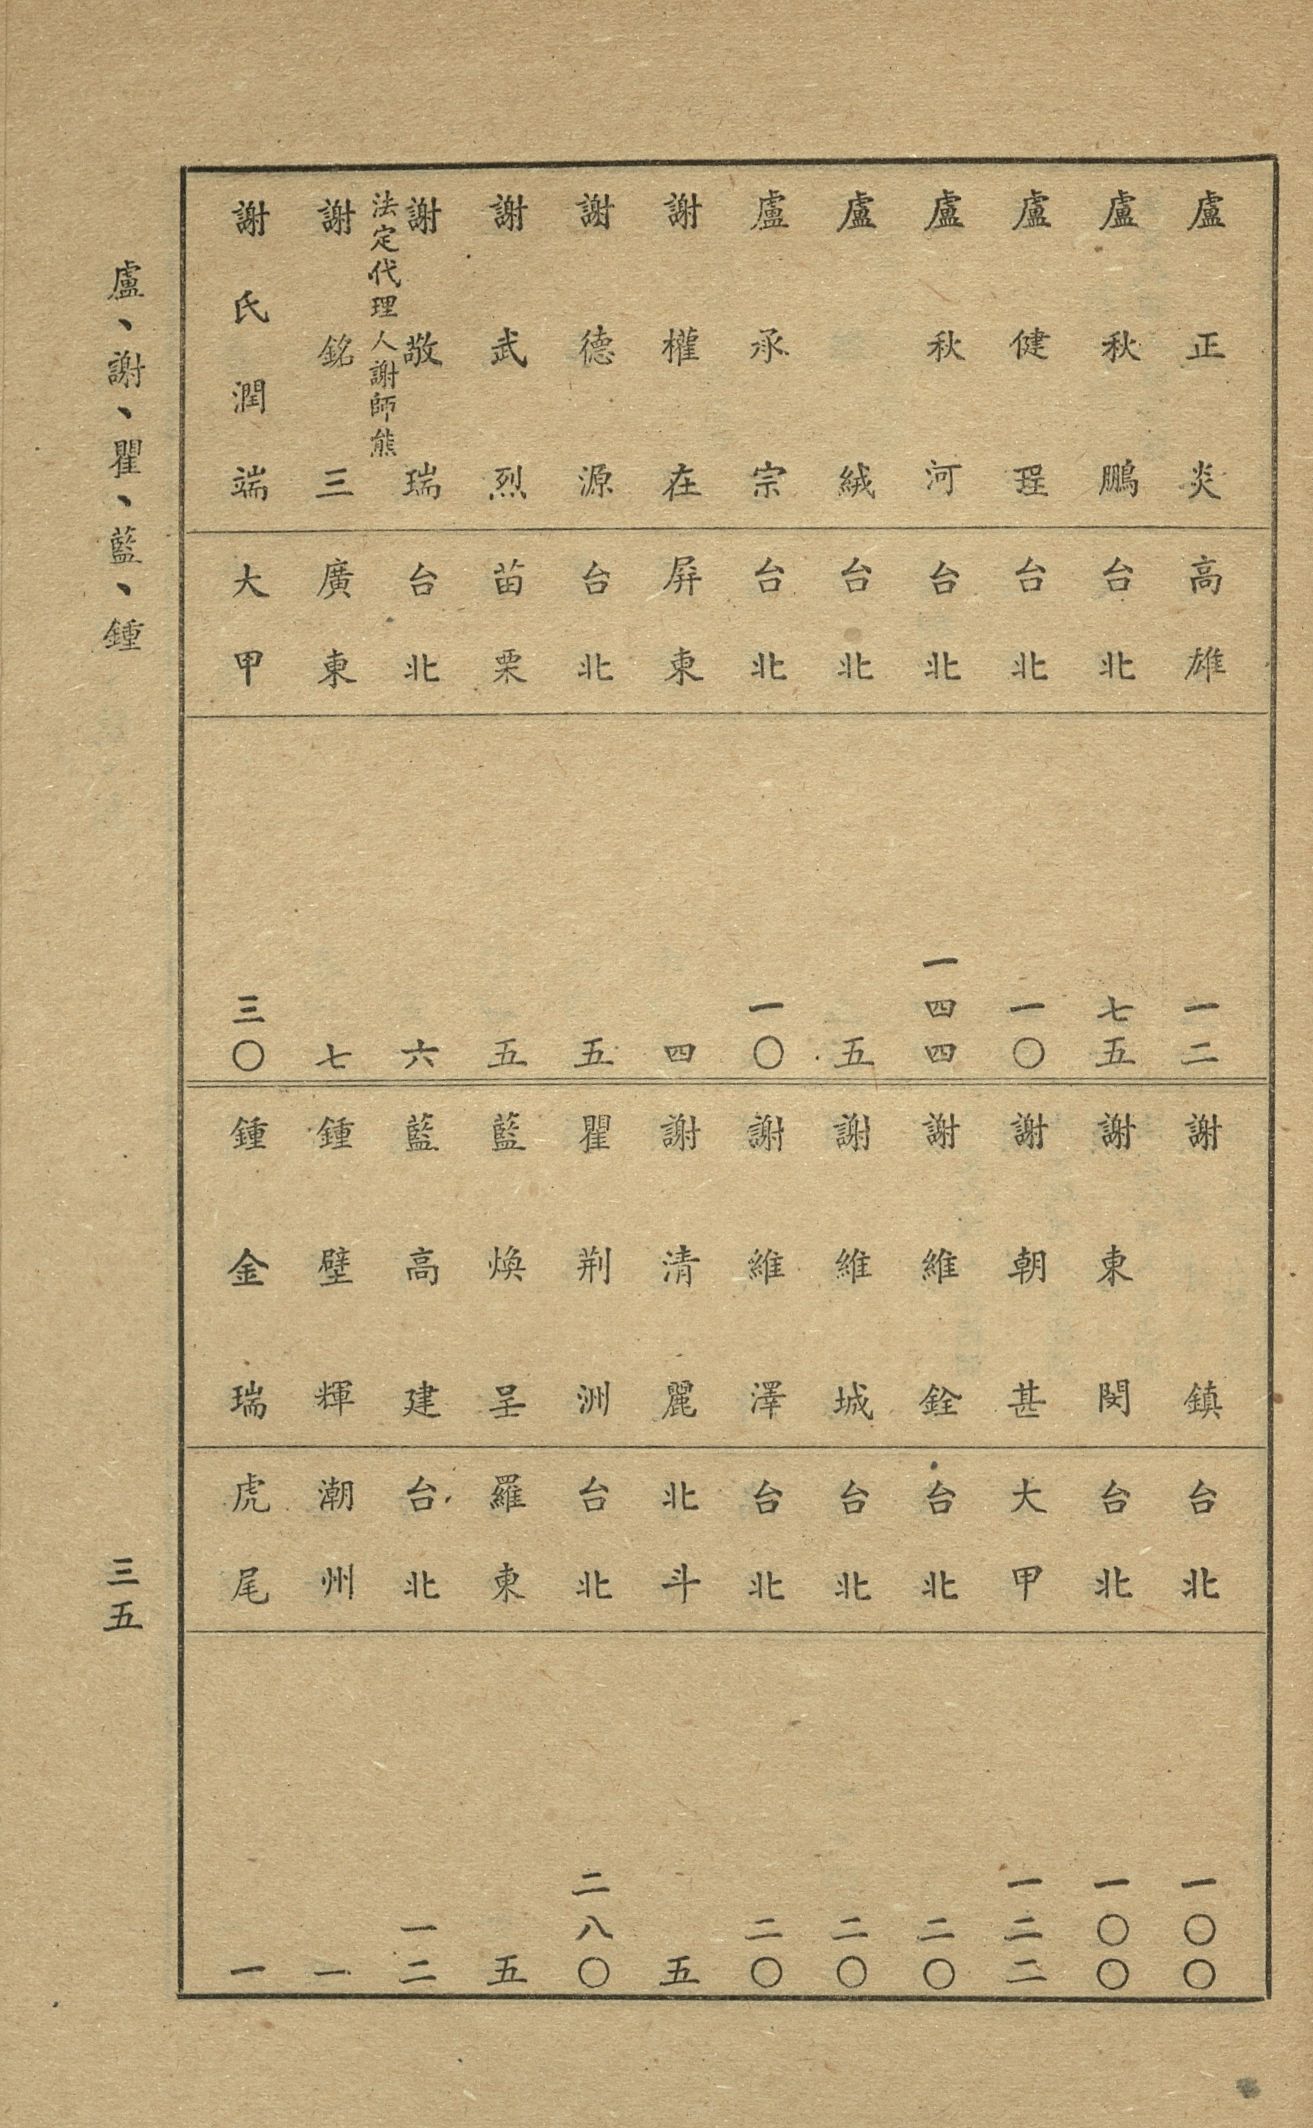 盧正炎 高雄 一二
盧秋鵬 台北 七五
盧健珵 台北 一〇
盧秋河 台北 一四四
盧絨 台北 五
盧承宗 台北 一〇
謝權在 屏東 四
謝德源 台北 五
謝武烈 苗栗 五
謝敬瑞 台北 六
法定代理人謝師熊
謝銘三 廣東 七
謝氏潤端 大甲 三〇
謝鎮 台北 一〇〇
謝東閔 台北 一〇〇
謝朝甚 大甲 一二二
謝維銓 台北 二〇
謝維城 台北 二〇
謝維澤 台北 二〇
謝清麗 北斗 五
瞿荆洲 台北 二八〇
藍煥呈 羅東 五
藍高建 台北 一二
鍾壁輝 潮州 一
鍾金瑞 虎尾 一
盧、謝、瞿、藍、鍾
三五